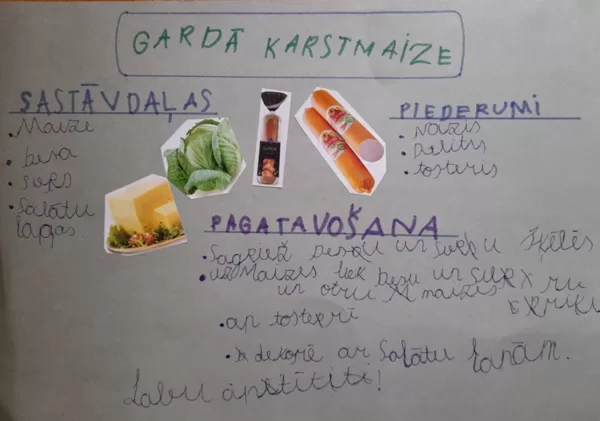 GARDĀ KARSTMAIZE
SASTĀVDAĻAS
• Maize
• besa
• siers
• Salātu
lapas.
PIEDERUMI
• Nazis
• tosteris
PAGATAVOŠANA
• Sagriež desu un sieru Šķēlēs
• uz Maizes liek
un otru maizes
• ap tosterī
• dekorē ar Salātu lapām.
Labu apetīti!